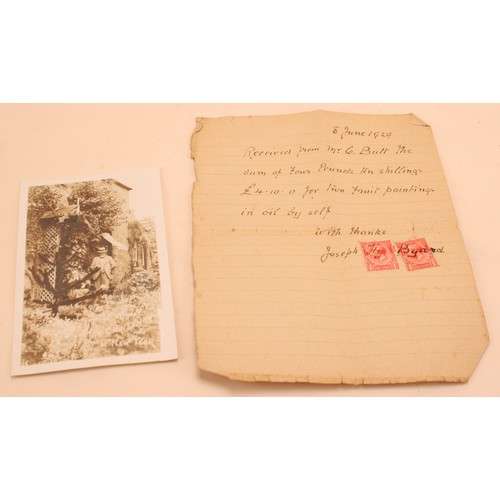 8 June 1929
Received from Mr C. Butt. The
sum of Four Pounds ten shillings
£4-10-0 for two fruit paintings
in oil by self
With thanks
Joseph Byard
New Year